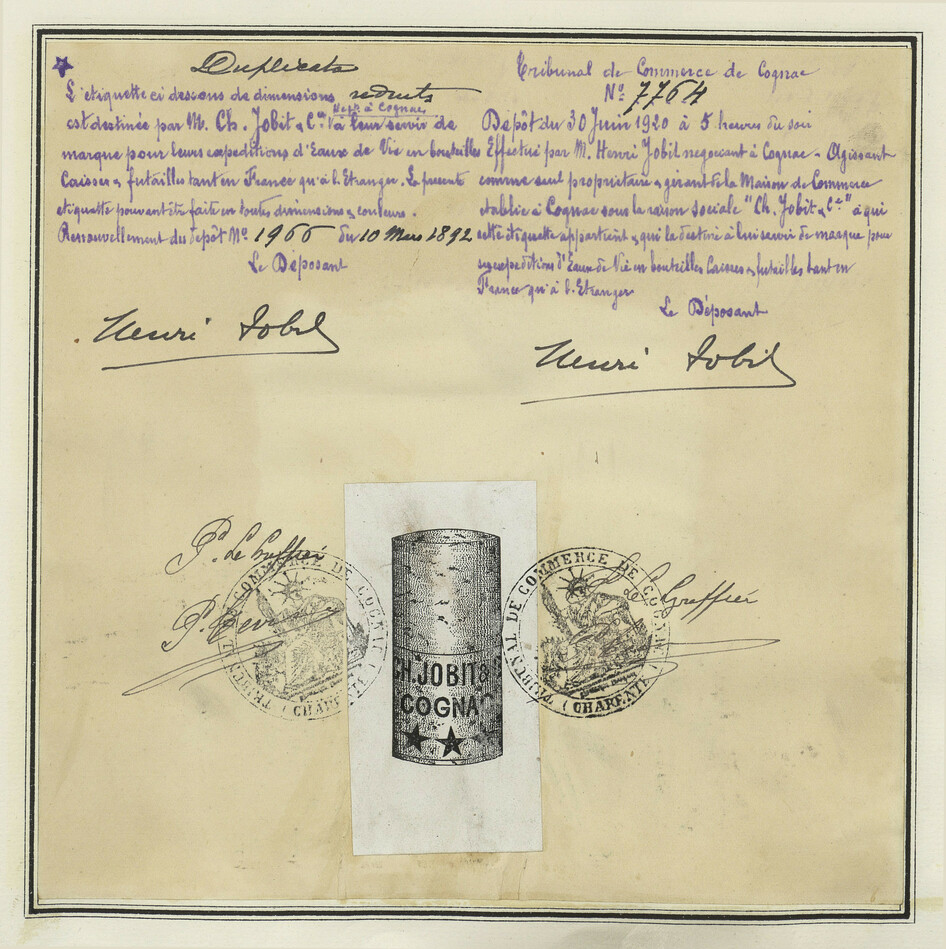 Duplicata
L'etiquette ci dessous de dimensions reduites
est destinée par M. Ch. Jobit & Cie Negts à Cognac à leur servir de
marque pour leurs expeditions d'Eaux de Vie en bouteilles
Caisses & futailles tant en France qu'à l'Etranger. La présente
etiquette pouvant être faite en toutes dimensions & couleurs.
Renouvellement du depôt No 1966 du 10 Mars 1892
Le Déposant
Henri Jobit
Tribunal de Commerce de Cognac
No 7764
Depôt du 30 Juin 1920 à 5 heures du soir
Effectué par M. Henri Jobit negociant à Cognac - Agissant
comme seul propriétaire & gérant de la Maison de Commerce
etablie à Cognac sous la raison sociale "Ch. Jobit & Cie" à qui
cette étiquette appartient & qui la destine à lui servir de marque pour
ses expeditions d'Eaux de Vie en bouteilles Caisses & futailles tant en
France qu'à l'Etranger
Le Déposant
Henri Jobit
P. Le Greffier
TRIBUNAL DE COMMERCE DE COGNAC (CHARENTE)
CH. JOBIT &
COGNAC
Le Greffier
TRIBUNAL DE COMMERCE DE COGNAC (CHARENTE)